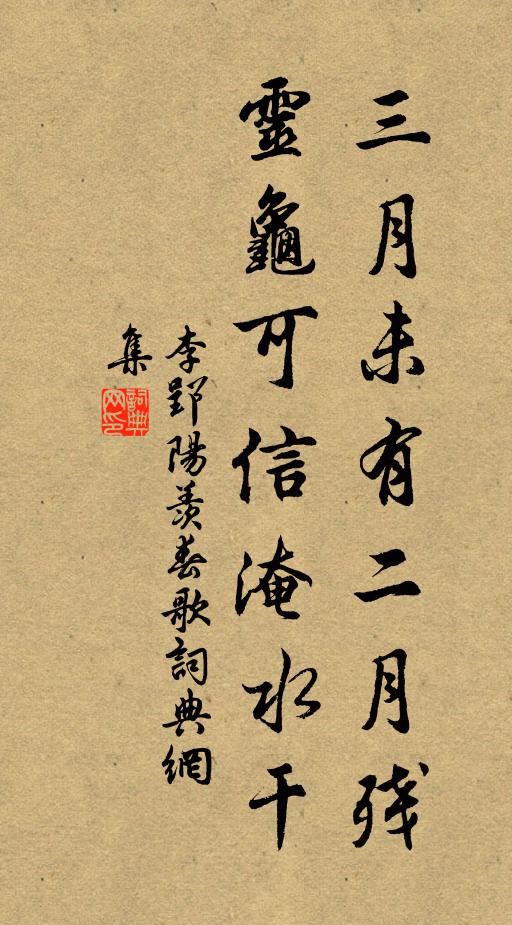 三月未有二月残
靈龜可信淹水干
李郢陽羨春歌詞典網
集
詞典
网印